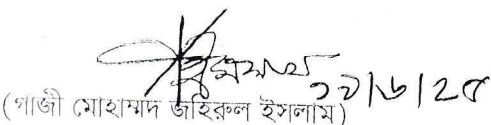 ২৯/৬/২৫
(গাজী মোহাম্মদ জহিরুল ইসলাম)